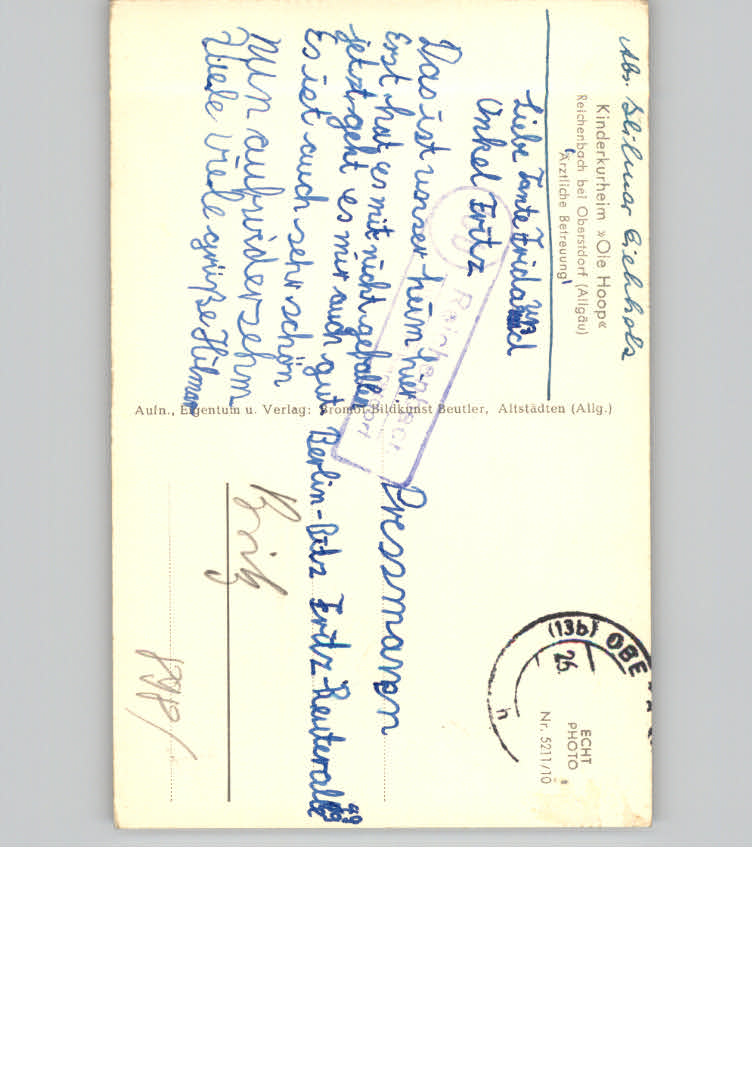 Abs. Hilmar Eichholz
Kinderkurheim »Ole Hoop«
Reichenbach bei Oberstdorf (Allgäu)
Ärztliche Betreuung
Liebe Tante Frida und
Onkel Fritz
Das ist unser heim hier.
Erst hat es mit nicht gefallen
jetzt geht es mir auch gut
Es ist auch sehr schön
Nun aufwidersehn
Viele Viele grüße Hilmar
Aufn., Eigentum u. Verlag: Bromot-Bildkunst Beutler, Altstädten (Allg.)
Reichenbach
(13b) OBE
26.
ECHT
PHOTO
Nr. 5211/10
Pressmann
Berlin-Britz Fritz-Reuterallee
49
Britz